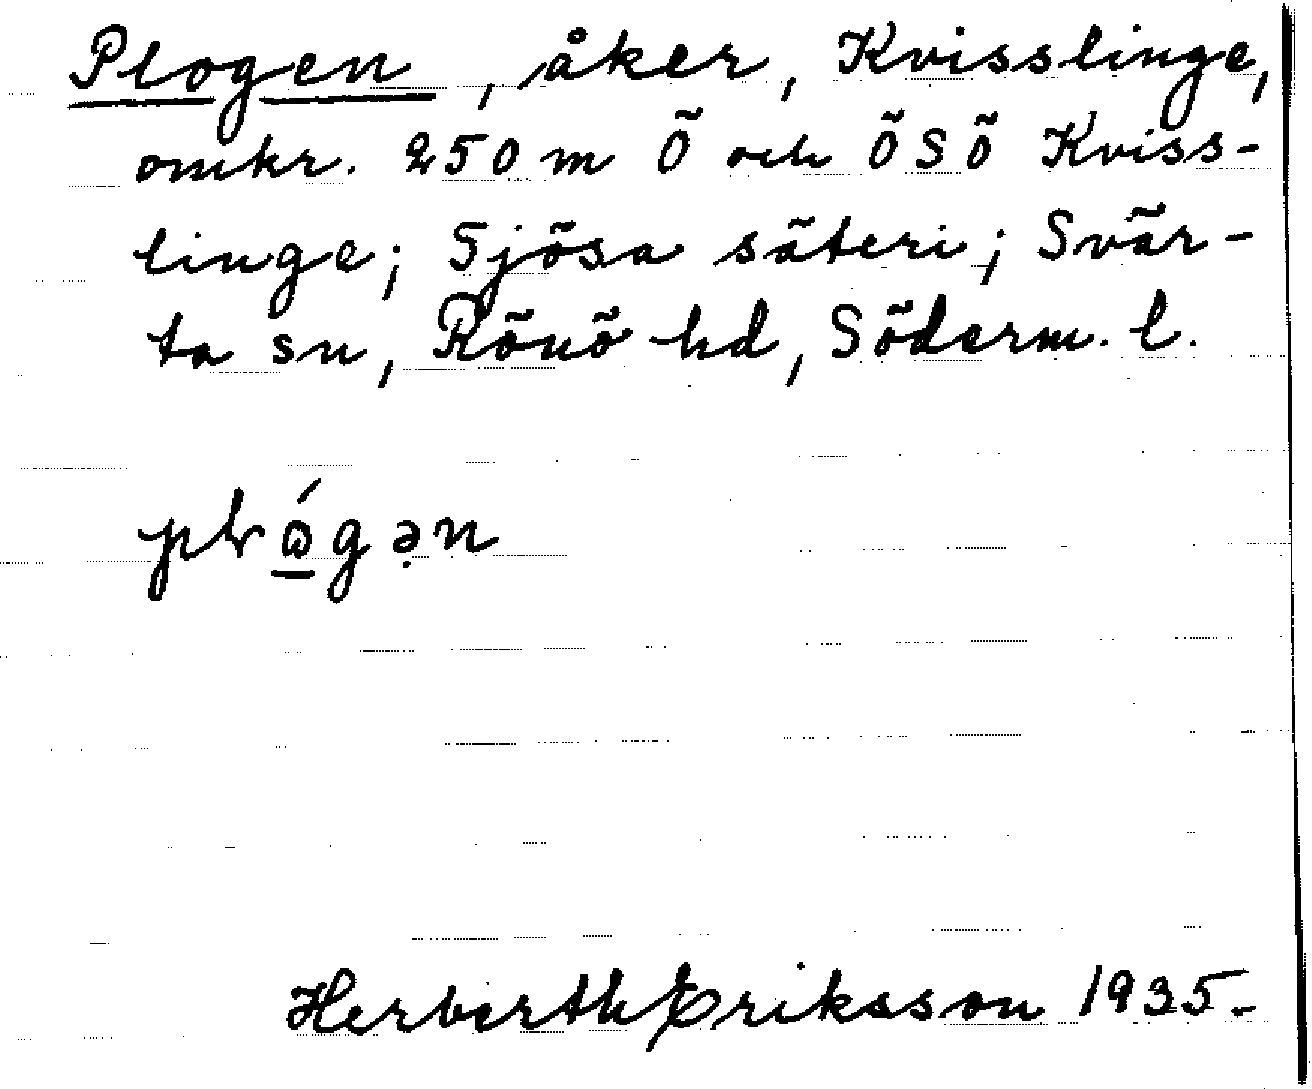 Plogen, åker, Kvisslinge,
omkr. 250 m Ö och ÖSÖ Kviss-
linge; Sjösa säteri; Svär-
ta sn, Rönö hd, Söderm. l.
Herberth Eriksson 1935.